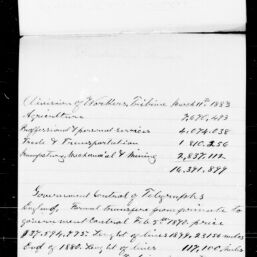 Division of Workers, Tribune March 11th 1883
Agriculture 7,670,493
Proffessional & personal services 4,074,038
Trade & Transportation 1,810,256
Manufactury Mechanical & Mining 3,837,112
16,391,899
Government Control of Telegraphs
England, Formal transfer from private to
government Control Feb 5th 1870. price
Lenght of lines 1869, miles
End of 1880. Lenght of lines 117,100 miles